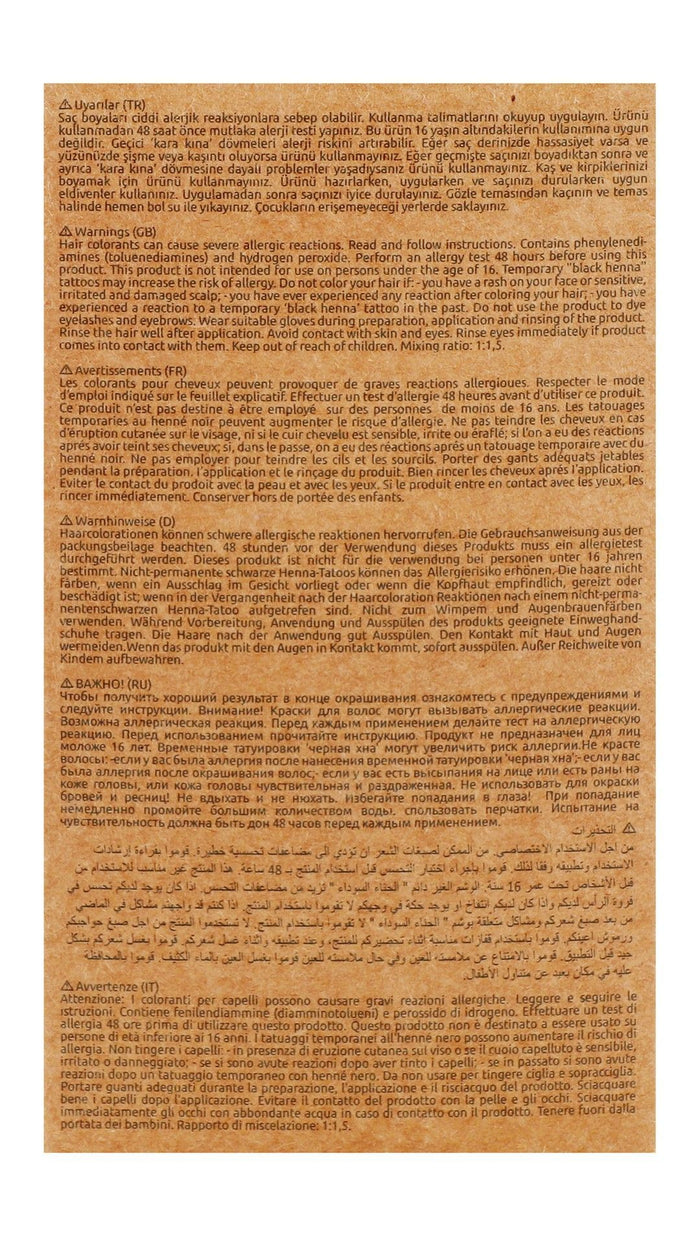 ⚠ Uyarılar (TR)
Saç boyaları ciddi alerjik reaksiyonlara sebep olabilir. Kullanma talimatlarını okuyup uygulayın. Ürünü
kullanmadan 48 saat önce mutlaka alerji testi yapınız. Bu ürün 16 yaşın altındakilerin kullanımına uygun
değildir. Geçici 'kara kına' dövmeleri alerji riskini artırabilir. Eğer saç derinizde hassasiyet varsa ve
yüzünüzde şişme veya kaşıntı oluyorsa ürünü kullanmayınız. Eğer geçmişte saçınızı boyadıktan sonra ve
ayrıca 'kara kına' dövmesine dayalı problemler yaşadıysanız ürünü kullanmayınız. Kaş ve kirpiklerinizi
boyamak için ürünü kullanmayınız. Ürünü hazırlarken, uygularken ve saçınızı durularken uygun
eldivenler kullanınız. Uygulamadan sonra saçınızı iyice durulayınız. Gözle temasından kaçının ve temas
halinde hemen bol su ile yıkayınız. Çocukların erişemeyeceği yerlerde saklayınız.
⚠ Warnings (GB)
Hair colorants can cause severe allergic reactions. Read and follow instructions. Contains phenylenedi-
amines (toluenediamines) and hydrogen peroxide. Perform an allergy test 48 hours before using this
product. This product is not intended for use on persons under the age of 16. Temporary "black henna"
tattoos may increase the risk of allergy. Do not color your hair if: - you have a rash on your face or sensitive,
irritated and damaged scalp; - you have ever experienced any reaction after coloring your hair; - you have
experienced a reaction to a temporary 'black henna' tattoo in the past. Do not use the product to dye
eyelashes and eyebrows. Wear suitable gloves during preparation, application and rinsing of the product.
Rinse the hair well after application. Avoid contact with skin and eyes. Rinse eyes immediately if product
comes into contact with them. Keep out of reach of children. Mixing ratio: 1:1,5.
⚠ Avertissements (FR)
Les colorants pour cheveux peuvent provoquer de graves reactions allergioues. Respecter le mode
d'emploi indiqué sur le feuillet explicatif. Effectuer un test d'allergie 48 heures avant d'utiliser ce produit.
Ce produit n'est pas destine à être employé sur des personnes de moins de 16 ans. Les tatouages
temporaries au henné noir peuvent augmenter le risque d'allergie. Ne pas teindre les cheveux en cas
d'éruption cutanée sur le visage, ni si le cuir chevelu est sensible, irrite ou éraflé; si l'on a eu des réactions
aprés avoir teint ses cheveux; si, dans le passe, on a eu des réactions aprés un tatouage temporaire avec du
henné noir. Ne pas employer pour teindre les cils et les sourcils. Porter des gants adéquats jetables
pendant la préparation, l'application et le rinçage du produit. Bien rincer les cheveux aprés l'application.
Eviter le contact du prodoit avec la peau et avec les yeux. Si le produit entre en contact avec les yeux, les
rincer immédiatement. Conserver hors de portée des enfants.
⚠ Warnhinweise (D)
Haarcolorationen können schwere allergische reaktionen hervorrufen. Die Gebrauchsanweisung aus der
packungsbeilage beachten. 48 stunden vor der Verwendung dieses Produkts muss ein allergietest
durchgeführt werden. Dieses produkt ist nicht für die verwendung bei personen unter 16 jahren
bestimmt. Nicht-permanente schwarze Henna-Tatoos können das Allergierisiko erhönen. Die haare nicht
färben, wenn ein Ausschlag im Gesicht vorliegt oder wenn die Kopfhaut empfindlich, gereizt oder
beschädigt ist; wenn in der Vergangenheit nach der Haarcoloration Reaktionen nach einem nicht-perma-
nentenschwarzen Henna-Tatoo aufgetrefen sind. Nicht zum Wimpem und Augenbrauenfärben
verwenden. Während Vorbereitung, Anwendung und Ausspülen des produkts geeignete Einweghand-
schuhe tragen. Die Haare nach der Anwendung gut Ausspülen. Den Kontakt mit Haut und Augen
wermeiden.Wenn das produkt mit den Augen in Kontakt kommt, sofort ausspülen. Außer Reichweite von
Kindem aufbewahren.
⚠ ВАЖНО! (RU)
Чтобы получить хороший результат в конце окрашивания ознакомтесь с предупреждениями и
следуйте инструкции. Внимание! Краски для волос могут вызывать аллергические реакции.
Возможна аллергическая реакция. Перед каждым применением делайте тест на аллергическую
реакцию. Перед использованием прочитайте инструкцию. Продукт не предназначен для лиц
моложе 16 лет. Временные татуировки 'черная хна' могут увеличить риск аллергии.Не красте
волосы: -если у вас была аллергия после нанесения временной татуировки 'черная хна';- если у вас
была аллергия после окрашивания волос;- если у вас есть высыпания на лице или есть раны на
коже головы, или кожа головы чувствительная и раздраженная. Не использовать для окраски
бровей и ресниц! Не вдыхать и не нюхать. Избегайте попадания в глаза! При попадание
немедленно промойте большим количеством воды. спользовать перчатки. Испытание на
чувствительность должна быть дон 48 часов перед каждым применением.
⚠ التحذيرات
من اجل الاستخدام الاختصاصي. من الممكن لصبغات الشعر ان تؤدي الى مضاعفات تحسسية خطيرة. قوموا بقراءة إرشادات
الاستخدام وتطبيقه وفقا لذلك. قوموا بإجراء اختبار التحسس قبل استخدام المنتج بـ 48 ساعة. هذا المنتج غير مناسب للاستخدام من
قبل الأشخاص تحت عمر 16 سنة. الوشم الغير دائم " الحناء السوداء " تزيد من مضاعفات التحسس. اذا كان يوجد لديكم تحسس في
فروة الرأس لديكم واذا كان لديكم انتفاخ او يوجد حكة في وجهكم لا تقوموا باستخدام المنتج. اذا كنتم قد واجهتم مشاكل في الماضي
من بعد صبغ شعركم ومشاكل متعلقة بوشم " الحناء السوداء " لا تقوموا باستخدام المنتج. لا تستخدموا المنتج من اجل صبغ حواجبكم
ورموش اعينكم. قوموا بأستخدام قفازات مناسبة اثناء تحضيركم للمنتج، وعند تطبيقه واثناء غسل شعركم. قوموا بغسل شعركم بشكل
جيد قبل التطبيق. قوموا بالامتناع عن ملامسته للعين وفي حال ملامسته للعين قوموا بغسل العين بالماء الكثيف. قوموا بالمحافظة
عليه في مكان بعيد عن متناول الأطفال.
⚠ Avvertenze (IT)
Attenzione: I coloranti per capelli possono causare gravi reazioni allergiche. Leggere e seguire le
istruzioni. Contiene fenilendiammine (diamminotolueni) e perossido di idrogeno. Effettuare un test di
allergia 48 ore prima di utilizzare questo prodotto. Questo prodotto non è destinato a essere usato su
persone di età inferiore ai 16 anni. I tatuaggi temporanei all'henné nero possono aumentare il rischio di
allergia. Non tingere i capelli: - in presenza di eruzione cutanea sul viso o se il cuoio capelluto è sensibile,
irritato o danneggiato; - se si sono avute reazioni dopo aver tinto i capelli; - se in passato si sono avute
reazioni dopo un tatuaggio temporaneo con henné nero. Da non usare per tingere ciglia e sopracciglia.
Portare guanti adeguati durante la preparazione, l'applicazione e il risciacquo del prodotto. Sciacquare
bene i capelli dopo l'applicazione. Evitare il contatto del prodotto con la pelle e gli occhi. Sciacquare
immediatamente gli occhi con abbondante acqua in caso di contatto con il prodotto. Tenere fuori dalla
portata dei bambini. Rapporto di miscelazione: 1:1,5.